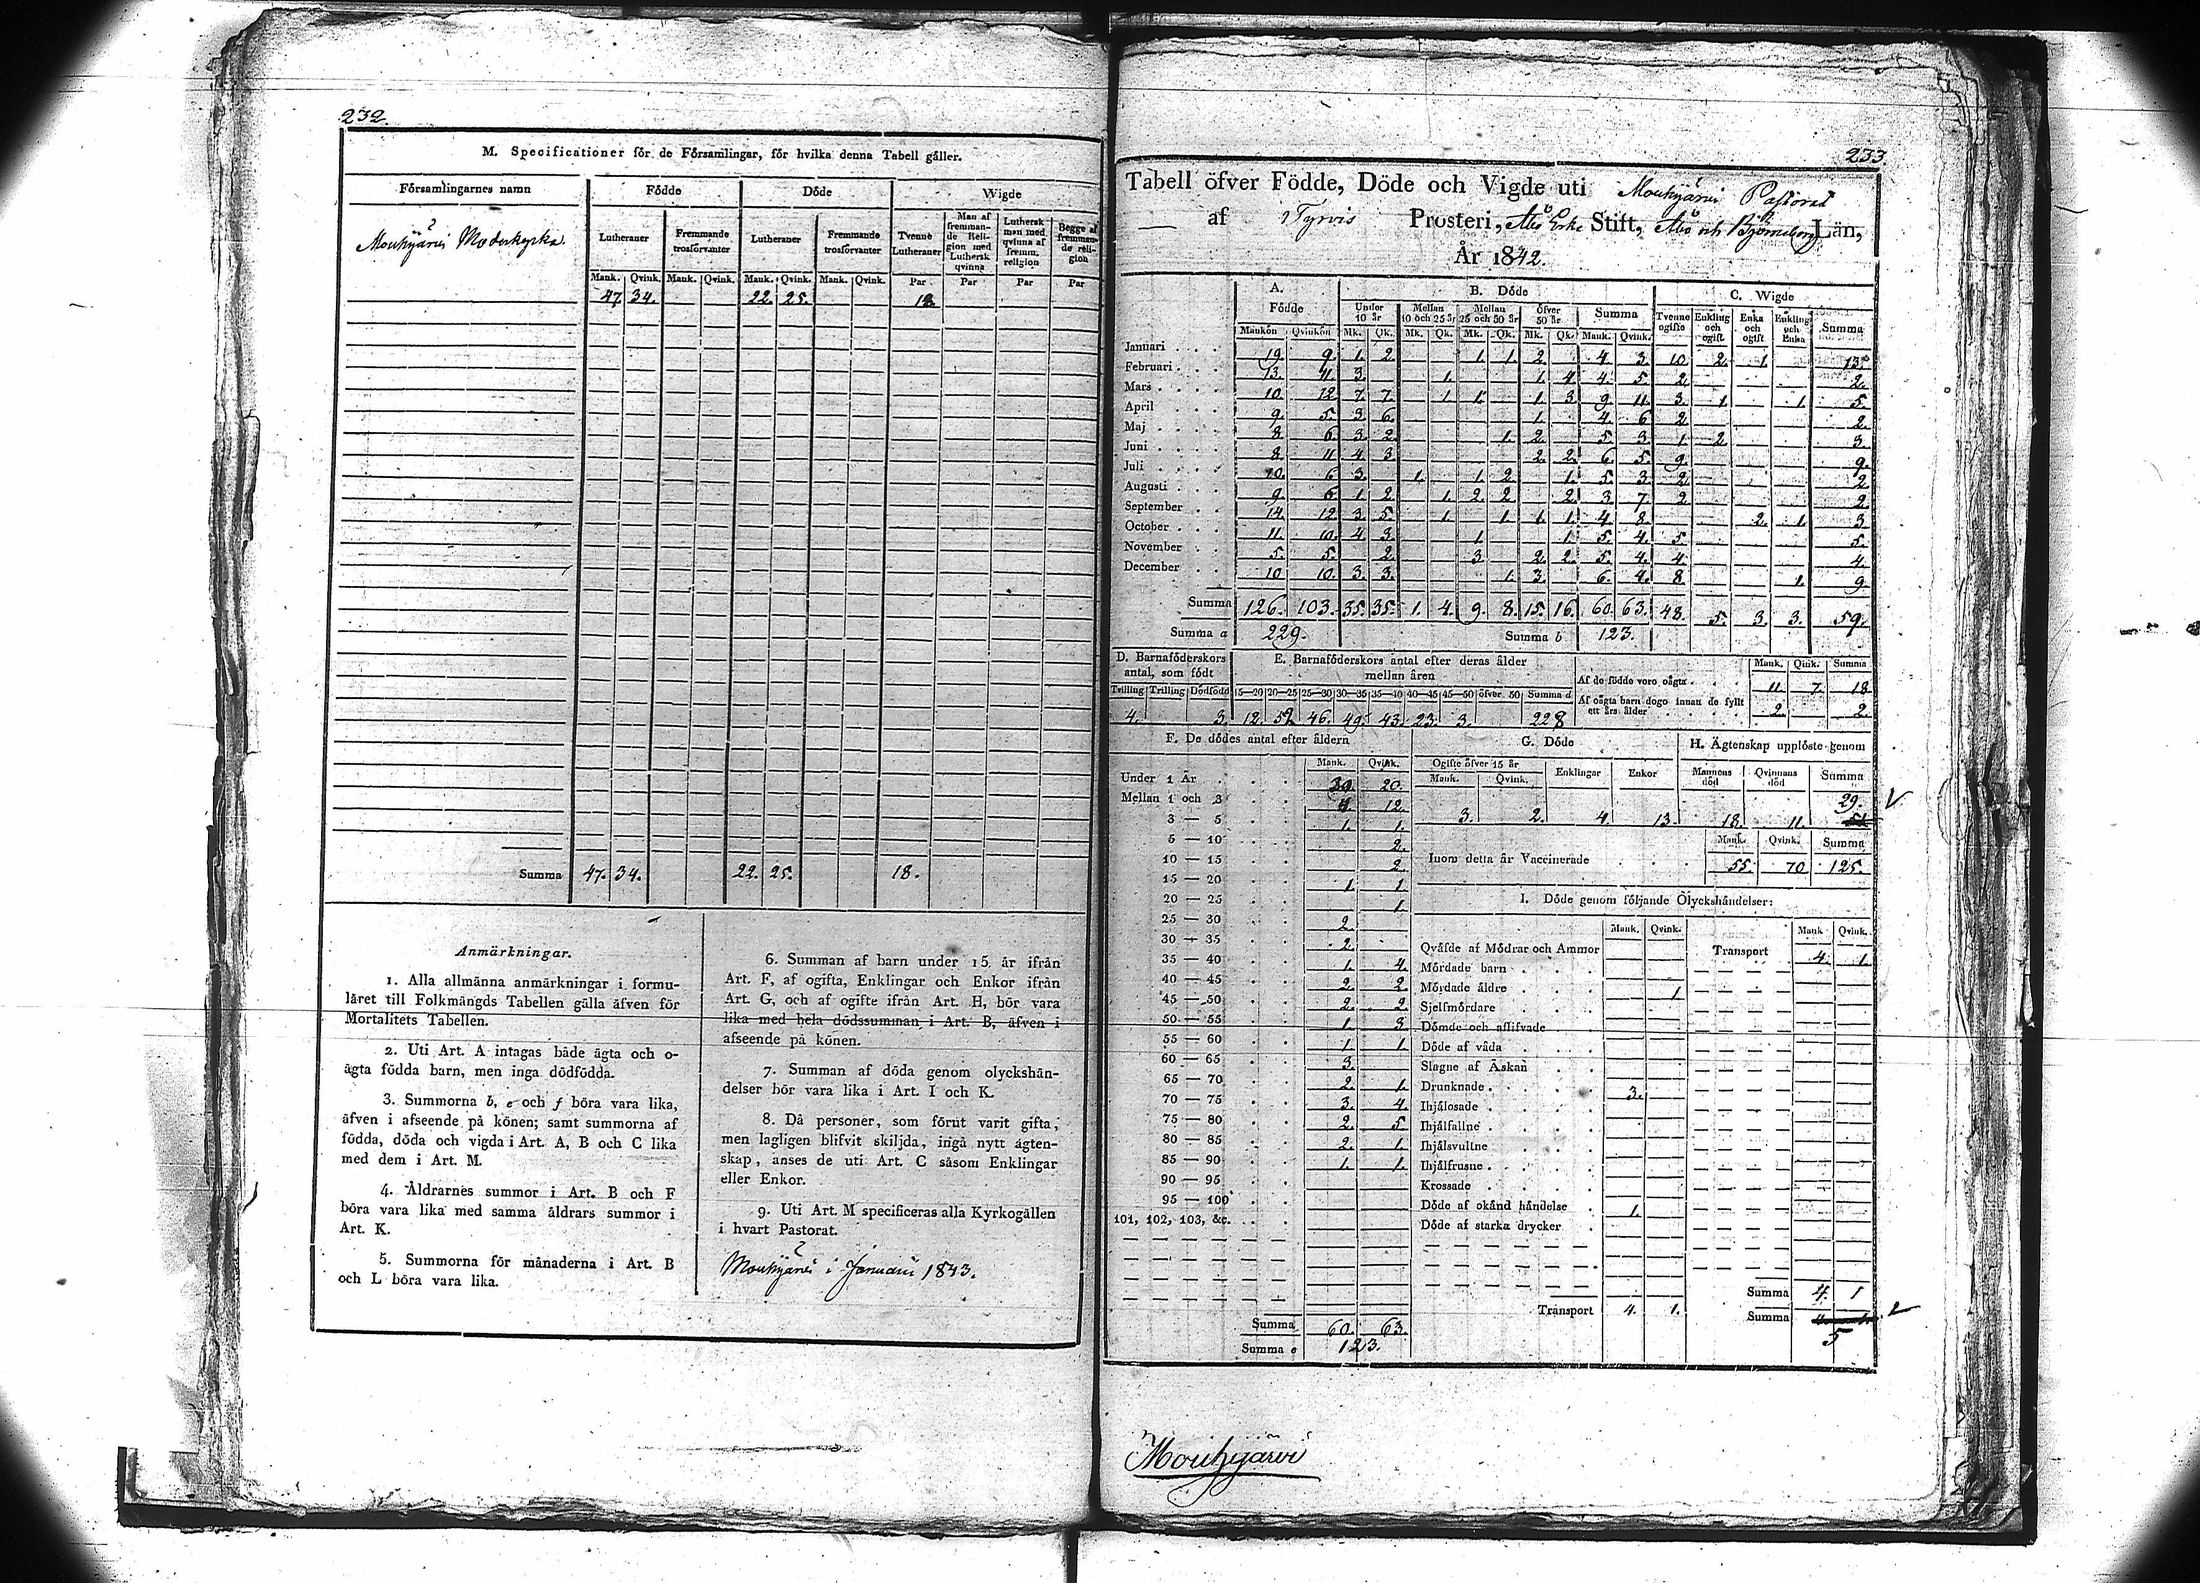 232.
M. Specificationer för de Församlingar, för hvilka denna Tabell gäller.
Församlingarnes namn | Födde | Döde | Wigde
Lutheraner | Fremmande trosförvanter | Lutheraner | Fremmande trosförvanter | Tvenne Lutheraner | Man af fremmande Religion med Luthersk qvinna | Luthersk man med qvinna af fremm. religion | Begge af fremmande religion
Mank. | Qvink. | Mank. | Qvink. | Mank. | Qvink. | Mank. | Qvink. | Par | Par | Par | Par
Mouhijärvi Moderkyrka.
47. 34. 22. 25. 18.
Summa 47. 34. 22. 25. 18.
Anmärkningar.
1. Alla allmänna anmärkningar i formu-
läret till Folkmängds Tabellen gälla äfven för
Mortalitets Tabellen.
2. Uti Art. A intagas både ägta och o-
ägta födda barn, men inga dödfödda.
3. Summorna b, e och f böra vara lika,
äfven i afseende på könen; samt summorna af
födda, döda och vigda i Art. A, B och C lika
med dem i Art. M.
4. Åldrarnes summor i Art. B och F
böra vara lika med samma åldrars summor i
Art. K.
5. Summorna för månaderna i Art. B
och L böra vara lika.
6. Summan af barn under 15 år ifrån
Art. F, af ogifta, Enklingar och Enkor ifrån
Art. G, och af ogifte ifrån Art. H, bör vara
lika med hela dödssumman i Art. B, äfven i
afseende på könen.
7. Summan af döda genom olyckshän-
delser bör vara lika i Art. I och K.
8. Då personer, som förut varit gifta,
men lagligen blifvit skiljda, ingå nytt ägten-
skap, anses de uti Art. C såsom Enklingar
eller Enkor.
9. Uti Art. M specificeras alla Kyrkogällen
i hvart Pastorat.
Mouhijärvi i Januarii 1843.
233.
Tabell öfver Födde, Döde och Vigde uti Mouhijärvi Pastorat
af Tyrvis Prosteri, Åbo Erke Stift, Åbo och Björneborgs Län,
År 1842.
A. Födde | B. Döde | C. Wigde
Under 10 år | Mellan 10 och 25 år | Mellan 25 och 50 år | Öfver 50 år | Summa | Tvenne ogifte | Enkling och ogift | Enka och ogift | Enkling och Enka | Summa
Mankön | Qvinkön | Mk. | Qk. | Mk. | Qk. | Mk. | Qk. | Mk. | Qk. | Mank. | Qvink.
Januari 19. 9. 1. 2. 1. 1. 2. 4. 3. 10. 2. 1. 13.
Februari 13. 11. 3. 1. 1. 4. 4. 5. 2. 2.
Mars 10. 12. 7. 7. 1. 1. 1. 3. 9. 11. 3. 1. 1. 5.
April 9. 5. 3. 6. 1. 4. 6. 2. 2.
Maj 8. 6. 3. 2. 1. 2. 5. 3. 1. 2. 3.
Juni 8. 11. 4. 3. 2. 2. 6. 5. 9. 9.
Juli 10. 6. 3. 1. 1. 2. 1. 5. 3. 2. 2.
Augusti 9. 6. 1. 2. 1. 2. 2. 2. 3. 7. 2. 2.
September 14. 12. 3. 5. 1. 1. 1. 1. 4. 8. 2. 1. 3.
October 11. 10. 4. 3. 1. 1. 5. 4. 5. 5.
November 5. 5. 2. 3. 2. 2. 5. 4. 4. 4.
December 10. 10. 3. 3. 1. 3. 6. 4. 8. 1. 9.
Summa 126. 103. 35. 35. 1. 4. 9. 8. 15. 16. 60. 63. 48. 5. 3. 3. 59.
Summa a 229. Summa b 123.
D. Barnaföderskors antal, som födt | E. Barnaföderskors antal efter deras ålder mellan åren | Mank. | Qink. | Summa
Tvilling | Trilling | Dödfödd | 15—20 | 20—25 | 25—30 | 30—35 | 35—40 | 40—45 | 45—50 | öfver 50 | Summa d
4. 3. 12. 52. 46. 49. 43. 23. 3. 228
Af de födde voro oägta 11. 7. 18
Af oägta barn dogo innan de fyllt ett års ålder 2. 2.
F. De dödes antal efter åldern | G. Döde | H. Ägtenskap upplöste genom
Mank. | Qvink. | Ogifte öfver 15 år | Mank. | Qvink. | Enklingar | Enkor | Mannens död | Qvinnans död | Summa
3. 2. 4. 13. 18. 11. 29.
Under 1 År 30. 20.
Mellan 1 och 3 4. 12.
3 — 5 1. 1.
5 — 10 2.
10 — 15 2.
15 — 20 1. 1
20 — 25 1.
25 — 30 2.
30 — 35 2.
35 — 40 1. 4.
40 — 45 2. 2.
45 — 50 2. 2.
50 — 55 1. 3.
55 — 60 1. 1.
60 — 65 3.
65 — 70 2. 1.
70 — 75 3. 4.
75 — 80 2. 5.
80 — 85 2. 1.
85 — 90 1. 1.
90 — 95
95 — 100
101, 102, 103, &c.
Summa 60. 63.
Summa e 123.
Mank. | Qvink. | Summa
Inom detta år Vaccinerade 55. 70 125.
I. Döde genom följande Olyckshändelser:
Mank. | Qvink. | Mank | Qvink.
Qväfde af Mödrar och Ammor
Mördade barn
Mördade äldre 1
Sjelfmördare
Dömde och aflifvade
Döde af våda
Slagne af Åskan
Drunknade 3.
Ihjälosade
Ihjälfallne
Ihjälsvultne
Ihjälfrusne
Krossade
Döde af okänd händelse 1.
Döde af starka drycker
Transport 4. 1.
Transport 4. 1.
Summa 4. 1
Summa 5
Mouhijärvi